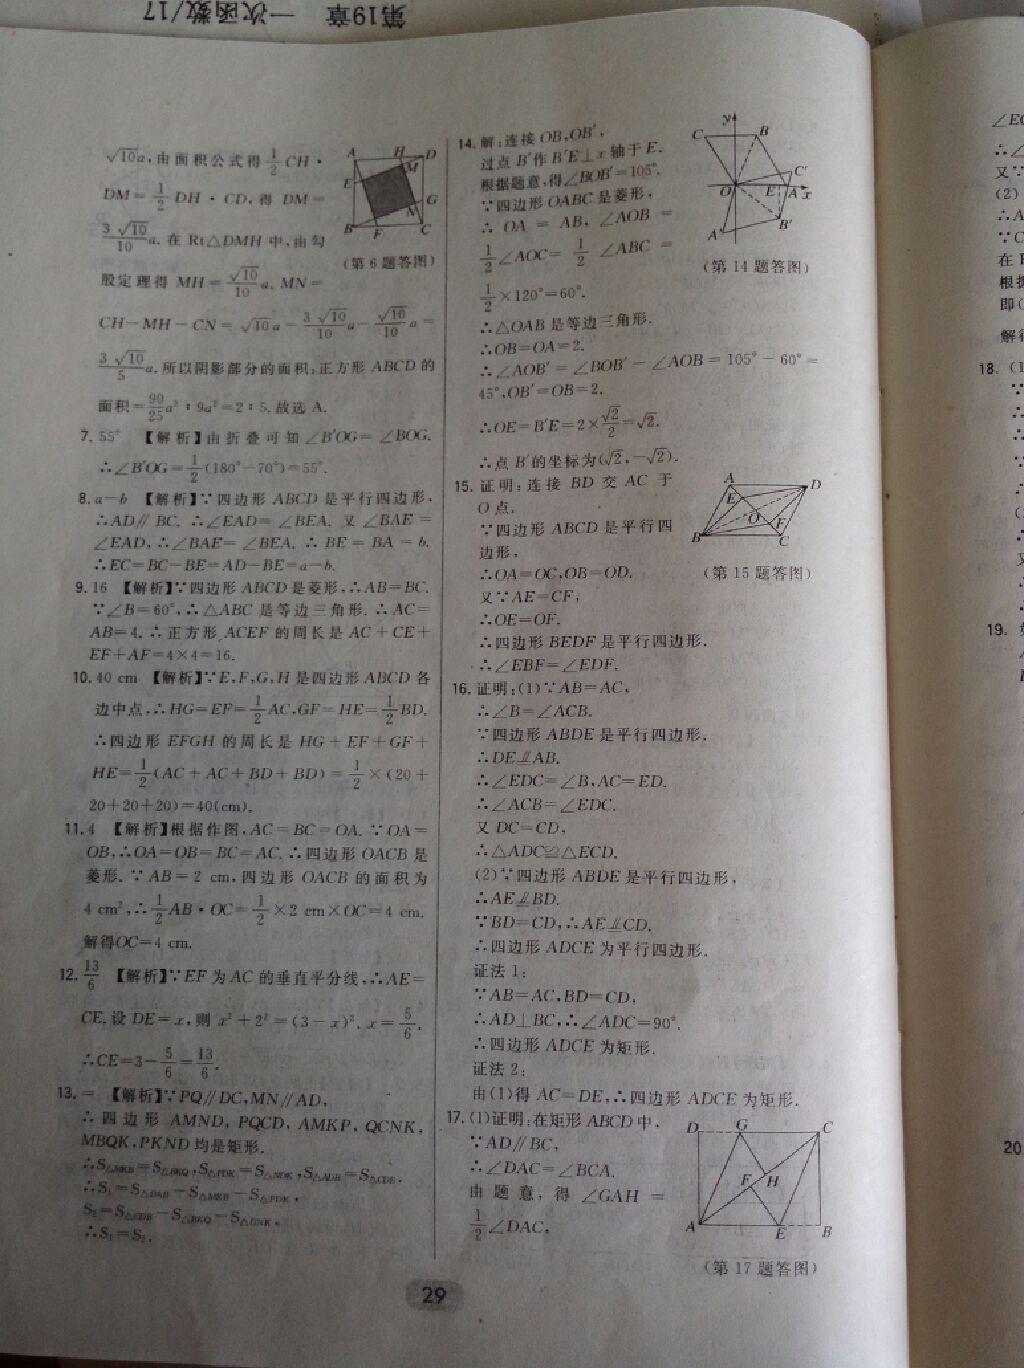 第19章 一次函数/17
√10a,由面积公式得 1/2 CH·
DM= 1/2 DH·CD,得 DM=
3√10/10 a.在 Rt△DMH 中,由勾
股定理得 MH= √10/10 a. MN=
CH-MH-CN= √10a- 3√10/10 a- √10/10 a=
3√10/5 a.所以阴影部分的面积:正方形 ABCD 的
面积= 90/25 a²:9a²=2:5.故选 A.
A H D
M
E
G
N
B F C
(第6题答图)
7. 55° 【解析】由折叠可知∠B′OG=∠BOG.
∴∠B′OG= 1/2 (180°-70°)=55°.
8. a-b 【解析】∵四边形 ABCD 是平行四边形,
∴AD∥BC. ∴∠EAD=∠BEA. 又∠BAE=
∠EAD,∴∠BAE=∠BEA. ∴BE=BA=b.
∴EC=BC-BE=AD-BE=a-b.
9. 16 【解析】∵四边形 ABCD 是菱形,∴AB=BC.
∵∠B=60°,∴△ABC 是等边三角形. ∴AC=
AB=4. ∴正方形 ACEF 的周长是 AC+CE+
EF+AF=4×4=16.
10. 40 cm 【解析】∵E,F,G,H 是四边形 ABCD 各
边中点,∴HG=EF= 1/2 AC,GF=HE= 1/2 BD.
∴四边形 EFGH 的周长是 HG+EF+GF+
HE= 1/2 (AC+AC+BD+BD)= 1/2 ×(20+
20+20+20)=40(cm).
11. 4 【解析】根据作图,AC=BC=OA. ∵OA=
OB,∴OA=OB=BC=AC. ∴四边形 OACB 是
菱形. ∵AB=2 cm,四边形 OACB 的面积为
4 cm²,∴ 1/2 AB·OC= 1/2 ×2 cm×OC=4 cm.
解得OC=4 cm.
12. 13/6 【解析】∵EF 为 AC 的垂直平分线,∴AE=
CE.设 DE=x,则 x²+2²=(3-x)². x= 5/6 .
∴CE=3- 5/6 = 13/6 .
13. = 【解析】∵PQ∥DC,MN∥AD,
∴四边形 AMND, PQCD, AMKP, QCNK,
MBQK,PKND 均是矩形.
∴S△MKB=S△BKQ,S△PDK=S△NDK,S△ADB=S△CDB.
∴S₁=S△DAB-S△MKB-S△PDK,
S₂=S△CDB-S△BKQ-S△DNK,
∴S₁=S₂.
14. 解:连接 OB,OB′,
过点 B′作 B′E⊥x 轴于 E.
根据题意,得∠BOB′=105°.
∵四边形 OABC 是菱形,
∴OA=AB,∠AOB=
1/2 ∠AOC= 1/2 ∠ABC=
1/2 ×120°=60°.
∴△OAB 是等边三角形.
∴OB=OA=2.
∴∠AOB′=∠BOB′-∠AOB=105°-60°=
45°,OB′=OB=2.
∴OE=B′E=2× √2/2 =√2.
∴点 B′的坐标为(√2,-√2).
y
C B
C′
O E A x
A′ B′
(第14题答图)
15. 证明:连接 BD 交 AC 于
O 点,
∵四边形 ABCD 是平行四
边形,
∴OA=OC,OB=OD.
又∵AE=CF,
∴OE=OF.
∴四边形 BEDF 是平行四边形.
∴∠EBF=∠EDF.
A D
E
O
F
B C
(第15题答图)
16. 证明:(1)∵AB=AC,
∴∠B=∠ACB.
∵四边形 ABDE 是平行四边形,
∴DE∥AB.
∴∠EDC=∠B,AC=ED.
∴∠ACB=∠EDC.
又 DC=CD,
∴△ADC≌△ECD.
(2)∵四边形 ABDE 是平行四边形,
∴AE∥BD.
∵BD=CD,∴AE∥CD.
∴四边形 ADCE 为平行四边形.
证法1:
∵AB=AC,BD=CD,
∴AD⊥BC,∴∠ADC=90°.
∴四边形 ADCE 为矩形.
证法2:
由(1)得 AC=DE,∴四边形 ADCE 为矩形.
17. (1)证明:在矩形 ABCD 中,
∵AD∥BC,
∴∠DAC=∠BCA.
由题意,得∠GAH=
1/2 ∠DAC,
D G C
F H
A E B
(第17题答图)
29
又∵
(2)
∴A
∵C
在
根据
即(
解得
18. (1
19.
20